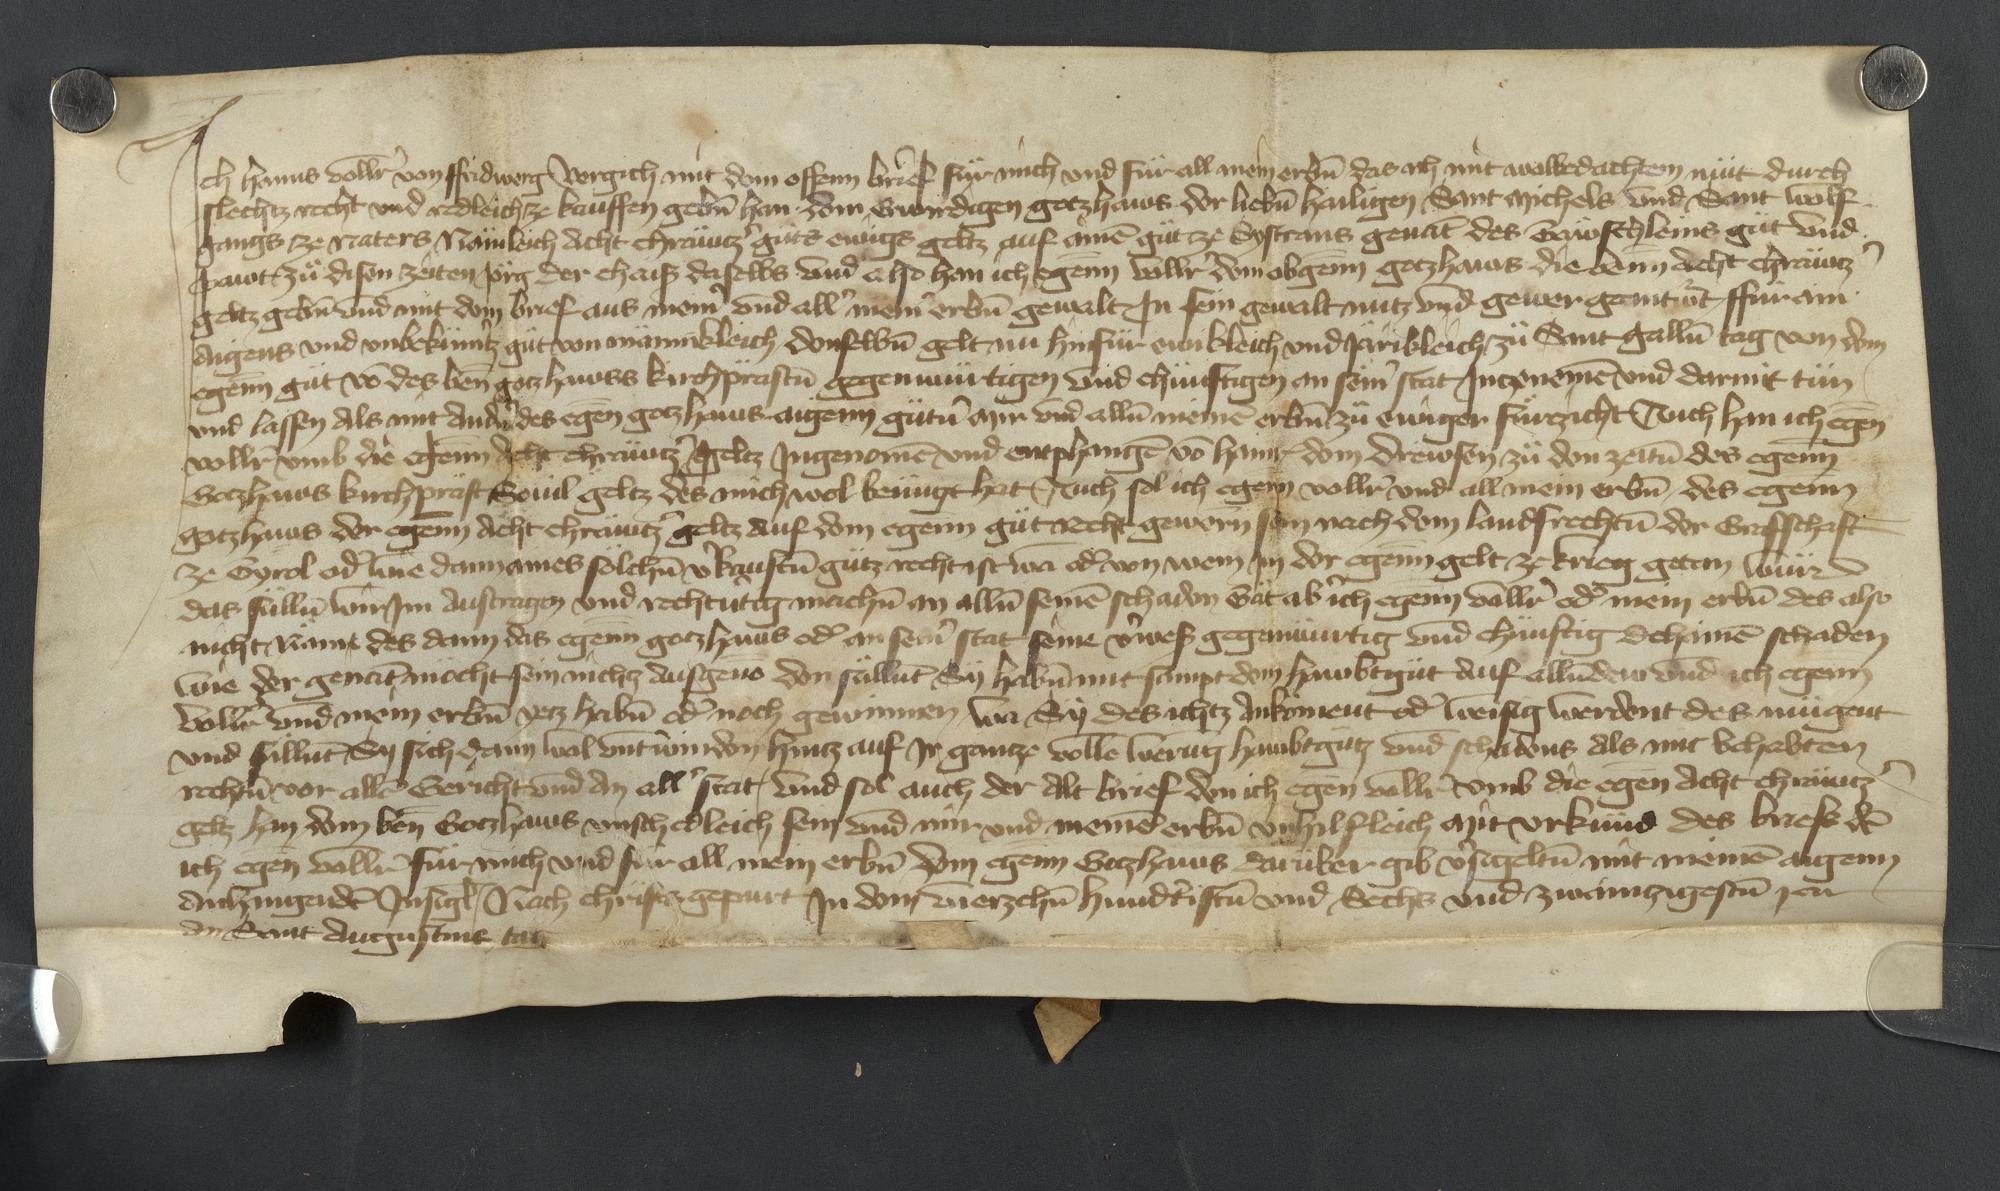 Ich Hanns vollr̄ von ffridwerg Vergich mit dem offenn brief für mich vnd für all mein erbn̄ das ich mit wolbedachtem müt durch
slechtz recht vnd redleich ze kauffen gebn̄ han dem Erwirdigen gotzhaws der liebn̄ hailigen Sant Michels vnd Sant Wolf
gangs ze Naters Nämleich Acht chräwtz̄ güts ewigs geltz auf aim̄ güt ze Systrans genāt des güt vnd
pawt zü disen zeiten Jörg der daselbs vnd also han ich egenn̄ vollr̄ dem obgenn̄ gotzhaws die benn̄ acht chräwtz̄
geltz gebn̄ vnd mit dem brief aus mein̄ vnd all̄ mein̄ erbn̄ gewalt In sein gewalt nutz vnd gewer geantw̄t ffür ain
Aigens vnd vnbekün̄tz güt von männikleich denselbn̄ gelt nu hinfür ewikleich vnd Järikleich zü Sant Galln̄ tag von dem
egenn̄ güt vō des ben̄ gotzhawss kirchpräстn̄ gegenwürtigen vnd chünftigen an sein̄ stat Intzenemē vnd darmit tün
vnd lassen Als mit And̄n̄ des egen̄ gotzhaws aigenn gütn̄ Mir vnd alln̄ meinē erbn̄ zü ewiger fürzicht Auch han ich egen̄
vollr̄ vmb die egenn̄ Acht chräwtz̄ geltz Ingenomē vnd emphangē vō dem Drewsen zü den zeitn̄ des egenn̄
Gotzhaws kirchpräst Souil geltz des mich wol benügt hat Auch sol ich egenn̄ vollr̄ vnd all mein erbn̄ des egenn̄
gotzhaws der egenn̄ Acht chräwtz̄ geltz Auf dem egenn̄ güt Recht gewern̄ sein nach dem landsrechtn̄ der Grafschaft
ze Tyrol od̄ wie dann aines sölchn̄ v̄kauftn̄ gütz recht ist wa od̄ von wem in der egenn̄ gelt ze krieg getan würd
das sülln̄ wir Im Austragen vnd rechtuertig machn̄ an alln̄ seinē schaden Tät ab ich egenn̄ vollr̄ od̄ mein erbn̄ des also
nicht des dann das egenn̄ gotzhaws od̄ an sein̄ stat seine v̄wes̄ gegenwürtig vnd chünftig dehainē schaden
wie der genāt möcht sein nichtz Ausgenō den süllnt Sy habn̄ mit sampt dem hawbtgüt Auf alln̄dew vnd ich egenn̄
vollr̄ vnd mein erbn̄ yetz habn̄ od̄ noch gewinnen wa Sy des ichtz Ankoment od̄ weisig werdent des mügent
vnd süllnt Sy sich dann wol vnt̄winden hintz auf Ir gantze volle werung hawbtgütz vnd schadens Als mit behabten
rechtn̄ vor allē Gericht vnd An all̄ stat vnd sol auch der Alt brief den ich egen̄ vollr̄ vmb die egen̄ Acht chräwtz̄
geltz han dem ben̄ Gotzhaws vnschedleich sein vnd mir vnd meinē erbn̄ vnhilfleich Mit vrkund des briefs dē
ich egen̄ vollr̄ für mich vnd für all mein erbn̄ dem egenn̄ Gotzhaws darüber gib v̄sigeltn̄ mit meinē aigenn
Anhangendē Insigl Nach christ gepurt In dem vierzehn̄ hund̄tistn̄ vnd Sechs vnd zwaintzigestn̄ Jar
An Sant Augustins tag